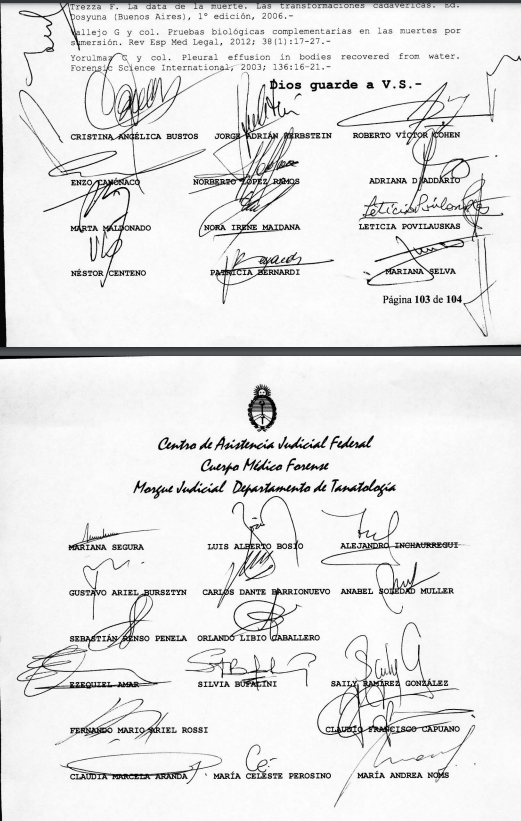 Trezza F. La data de la muerte. Las transformaciones cadavéricas. Ed.
Dosyuna (Buenos Aires), 1º edición, 2006.-
Vallejo G y col. Pruebas biológicas complementarias en las muertes por
sumersión. Rev Esp Med Legal, 2012; 38(1):17-27.-
Yorulmaz C y col. Pleural effusion in bodies recovered from water.
Forensic Science International, 2003; 136:16-21.-
Dios guarde a V.S.-
CRISTINA ANGÉLICA BUSTOS JORGE ADRIÁN HERBSTEIN ROBERTO VÍCTOR COHEN
ENZO CANÓNACO NORBERTO LÓPEZ RAMOS ADRIANA D'ADDARIO
Leticia Povilauskas
MARTA MALDONADO NORA IRENE MAIDANA LETICIA POVILAUSKAS
NÉSTOR CENTENO PATRICIA BERNARDI MARIANA SELVA
Página 103 de 104
Centro de Asistencia Judicial Federal
Cuerpo Médico Forense
Morgue Judicial Departamento de Tanatología
MARIANA SEGURA LUIS ALBERTO BOSIO ALEJANDRO INCHAURREGUI
GUSTAVO ARIEL BURSZTYN CARLOS DANTE BARRIONUEVO ANABEL SOLEDAD MULLER
SEBASTIÁN RENSO PENELA ORLANDO LIBIO CABALLERO
EZEQUIEL AMAR SILVIA BUFALINI SAILY RAMÍREZ GONZÁLEZ
FERNANDO MARIO ARIEL ROSSI CLAUDIO FRANCISCO CAPUANO
CLAUDIA MARCELA ARANDA MARÍA CELESTE PEROSINO MARÍA ANDREA NOMS